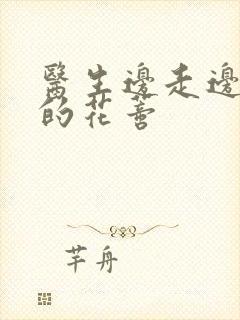 醫生邊走邊
的花蕾
芊舟